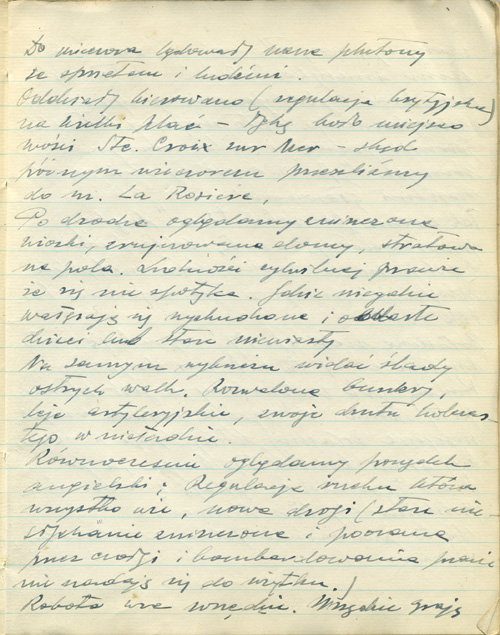 Do wieczora lądowały nasze plutony
ze sprzętem i ludźmi.
Oddziały kierowano (regulacja brytyjska)
na wielki plac – koło miejsco
wości Ste. Croix sur Mer – skąd
późnym wieczorem przeszliśmy
do m. La Rosière,
Po drodze oglądamy zniszczone
wioski, zrujnowane domy, stratowa
ne pola. Ludności cywilnej prawie
że się nie spotyka. Gdzie niegdzie
wałęsają się wychudzone i obdarte
dzieci lub stare niewiasty
Na samym wybrzeżu widać ślady
ostrych walk. Rozwalone bunkry,
leje artyleryjskie, zwoje drutu kolczas
tego w nieładzie.
Równocześnie oglądamy porządek
angielski; Regulacja ruchu która
wszystko wie, nowe drogi (stare nie-
słychanie zniszczone i poorane
przez czołgi i bombardowania prawie
nie nadają się do użytku.)
Robota wre wszędzie. Wszędzie grają